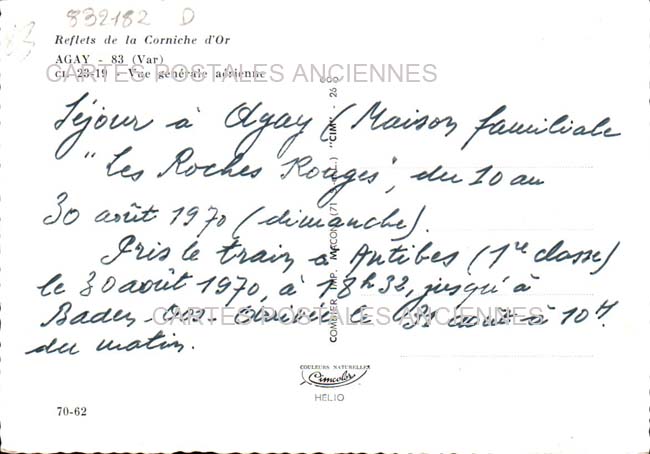 832182 D
83
Reflets de la Corniche d'Or
AGAY - 83 (Var)
CL 23-19 - Vue générale aérienne
CARTES POSTALES ANCIENNES
Séjour à Agay (Maison familiale
"Les Roches Rouges", du 10 au
30 août 1970 (dimanche).
Pris le train à Antibes (1re classe)
le 30 août 1970, à 18h32, jusqu'à
Baden-Oos. Arrivée le 31 août à 10h
du matin.
CARTES POSTALES ANCIENNES
COMBIER IMP. MACON (71 "CIM" - 26
COULEURS NATURELLES
Cimcolor
HELIO
70-62